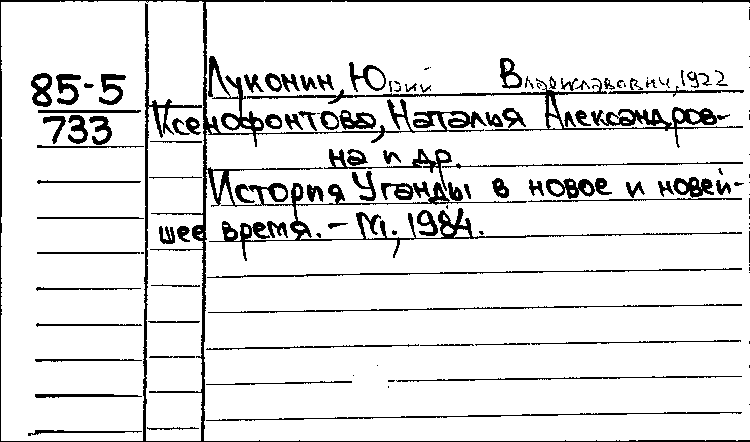 85-5
733
Луконин, Юрий Владиславович, 1922
Ксенофонтова, Наталья Александров-
на и др.
История Уганды в новое и новей-
шее время. - М., 1984.